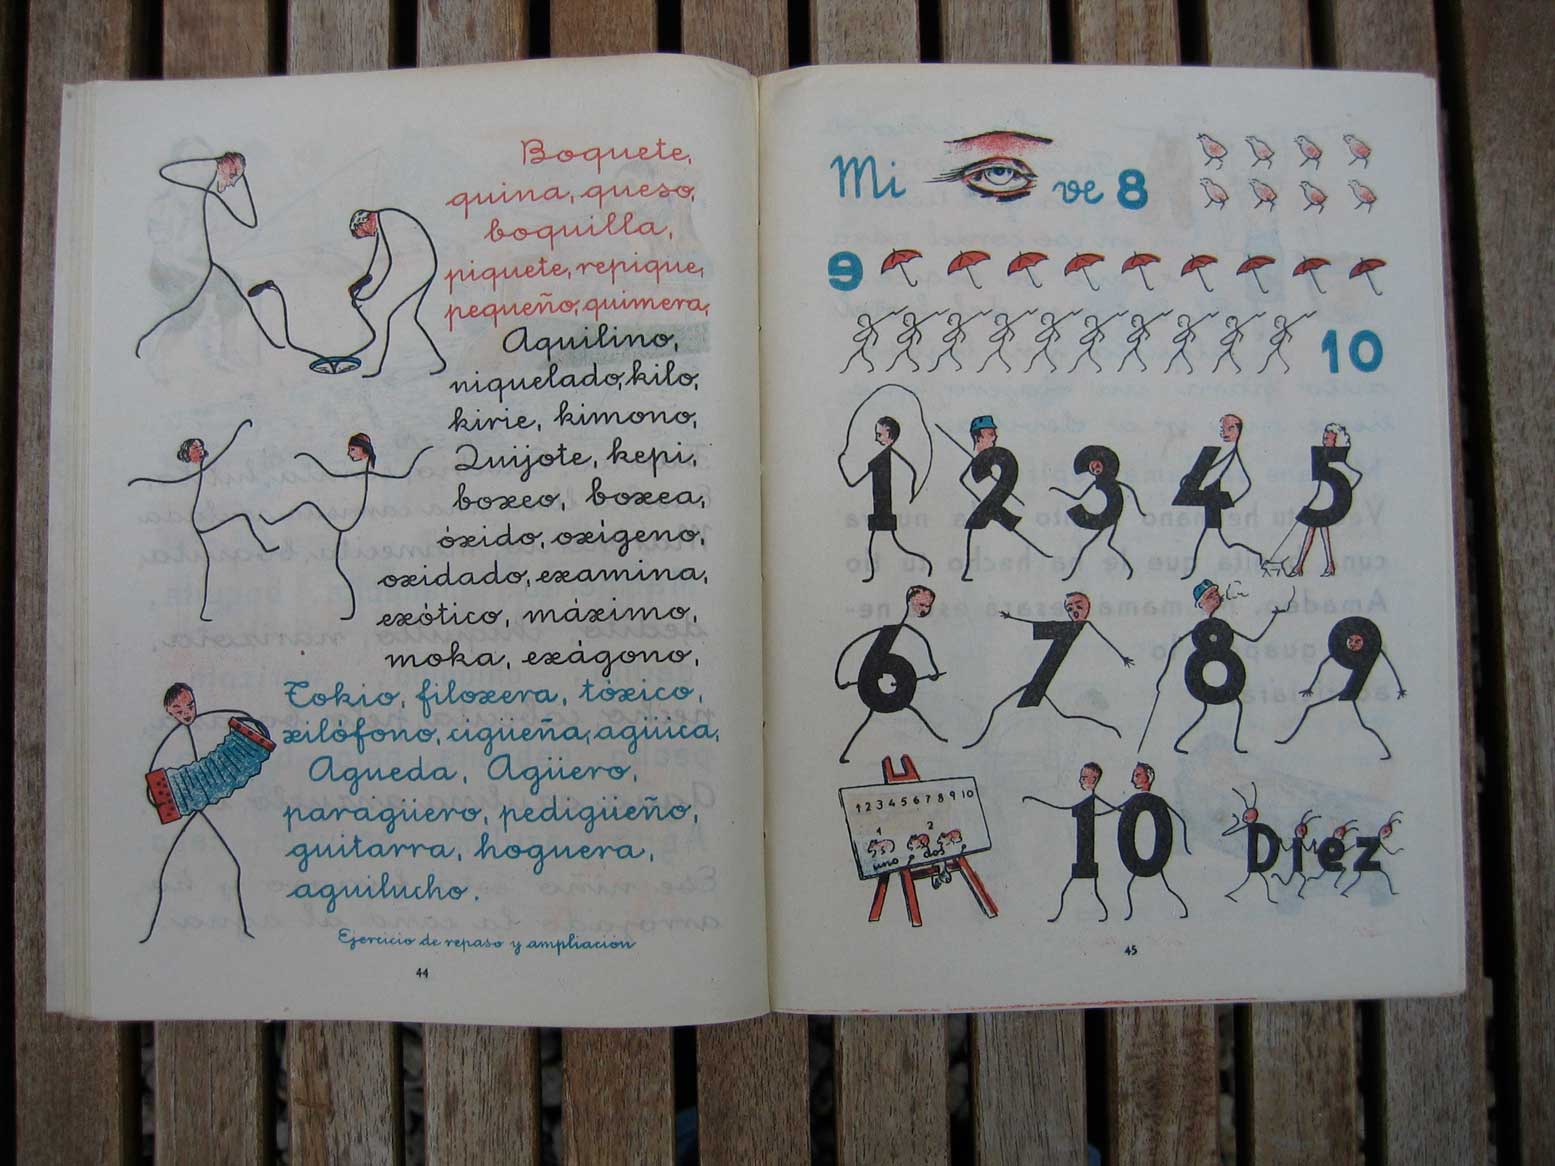 Boquete,
quina, queso,
boquilla,
piquete, repique,
pequeño, quimera,
Aquilino,
niquelado, kilo,
kirie, kimono,
Quijote, kepi,
boxeo, boxea,
óxido, oxígeno,
oxidado, examina,
exótico, máximo,
moka, exágono,
Tokio, filoxera, tóxico,
xilófono, cigüeña, agüica,
Agueda, Agüero,
paragüero, pedigüeño,
guitarra, hoguera,
aguilucho.
Ejercicio de repaso y ampliación
44
Mi ve 8
9
10
1 2 3 4 5
6 7 8 9
1 2 3 4 5 6 7 8 9 10
1 2
uno, dos,
10 Diez
45